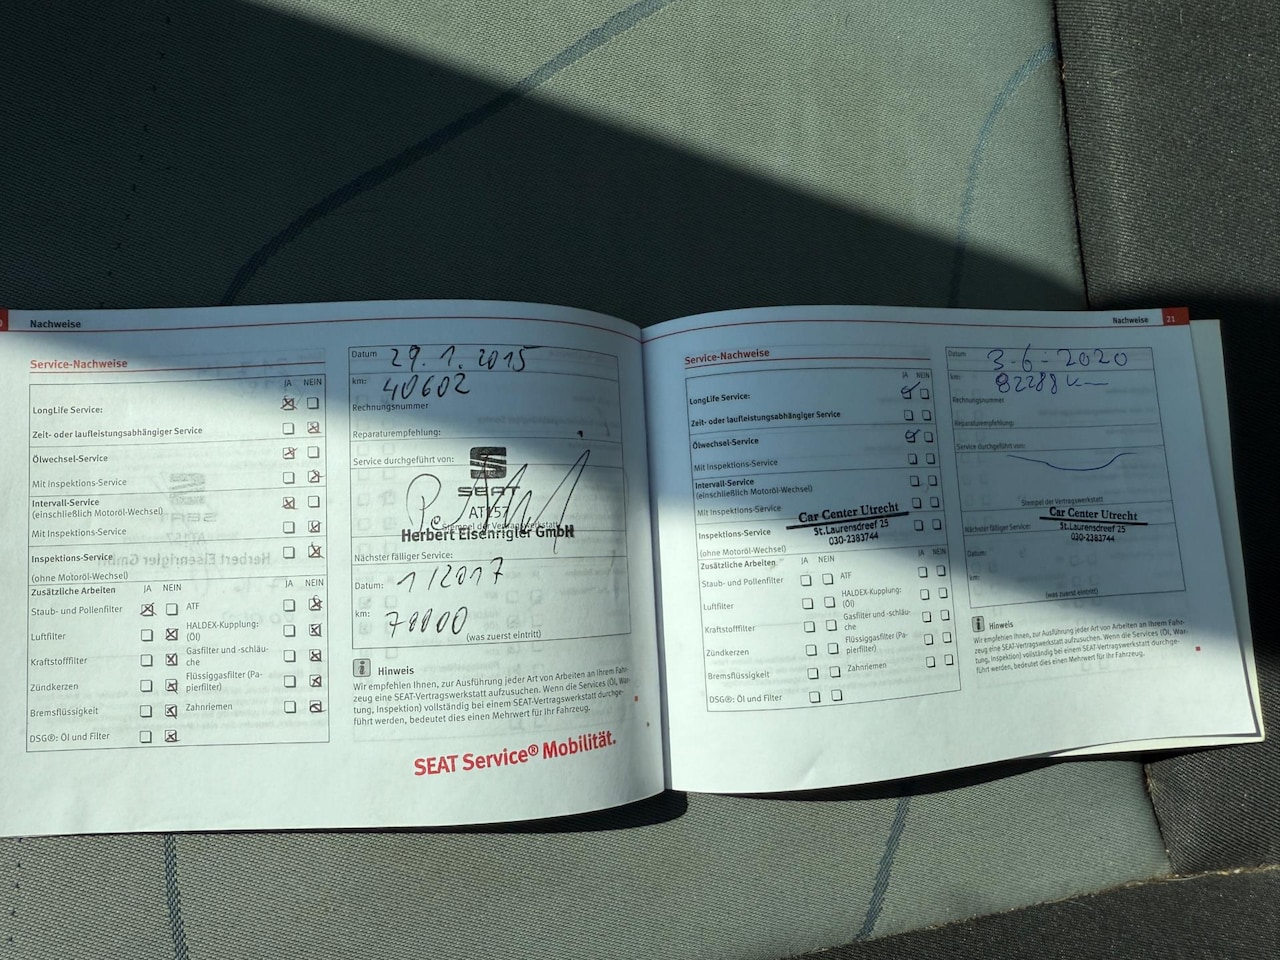 Nachweise
Service-Nachweise
JA NEIN
LongLife Service:
Zeit- oder laufleistungsabhängiger Service
Ölwechsel-Service
Mit Inspektions-Service
Intervall-Service
(einschließlich Motoröl-Wechsel)
Mit Inspektions-Service
Inspektions-Service
(ohne Motoröl-Wechsel)
Zusätzliche Arbeiten JA NEIN JA NEIN
Staub- und Pollenfilter
ATF
Luftfilter
HALDEX-Kupplung:
(Öl)
Kraftstofffilter
Gasfilter und -schläu-
che
Zündkerzen
Flüssiggasfilter (Pa-
pierfilter)
Bremsflüssigkeit
Zahnriemen
DSG®: Öl und Filter
Datum 29.1.2015
km: 40602
Rechnungsnummer
Reparaturempfehlung:
Service durchgeführt von:
SEAT
AT157
Stempel der Vertragswerkstatt
Herbert Eisenrigler GmbH
Nächster fälliger Service:
Datum: 1/2017
km: 78000
(was zuerst eintritt)
i Hinweis
Wir empfehlen Ihnen, zur Ausführung jeder Art von Arbeiten an Ihrem Fahr-
zeug eine SEAT-Vertragswerkstatt aufzusuchen. Wenn die Services (Öl, War-
tung, Inspektion) vollständig bei einem SEAT-Vertragswerkstatt durchge-
führt werden, bedeutet dies einen Mehrwert für Ihr Fahrzeug.
SEAT Service® Mobilität.
Nachweise 21
Service-Nachweise
JA NEIN
LongLife Service:
Zeit- oder laufleistungsabhängiger Service
Ölwechsel-Service
Mit Inspektions-Service
Intervall-Service
(einschließlich Motoröl-Wechsel)
Mit Inspektions-Service
Inspektions-Service
(ohne Motoröl-Wechsel)
Car Center Utrecht
St.Laurensdreef 25
030-2383744
Zusätzliche Arbeiten JA NEIN JA NEIN
Staub- und Pollenfilter
ATF
Luftfilter
HALDEX-Kupplung:
(Öl)
Kraftstofffilter
Gasfilter und -schläu-
che
Zündkerzen
Flüssiggasfilter (Pa-
pierfilter)
Bremsflüssigkeit
Zahnriemen
DSG®: Öl und Filter
Datum 3-6-2020
km: 82288 km
Rechnungsnummer
Reparaturempfehlung:
Service durchgeführt von:
Stempel der Vertragswerkstatt
Nächster fälliger Service:
Car Center Utrecht
St.Laurensdreef 25
030-2383744
Datum:
km:
(was zuerst eintritt)
i Hinweis
Wir empfehlen Ihnen, zur Ausführung jeder Art von Arbeiten an Ihrem Fahr-
zeug eine SEAT-Vertragswerkstatt aufzusuchen. Wenn die Services (Öl, War-
tung, Inspektion) vollständig bei einem SEAT-Vertragswerkstatt durchge-
führt werden, bedeutet dies einen Mehrwert für Ihr Fahrzeug.